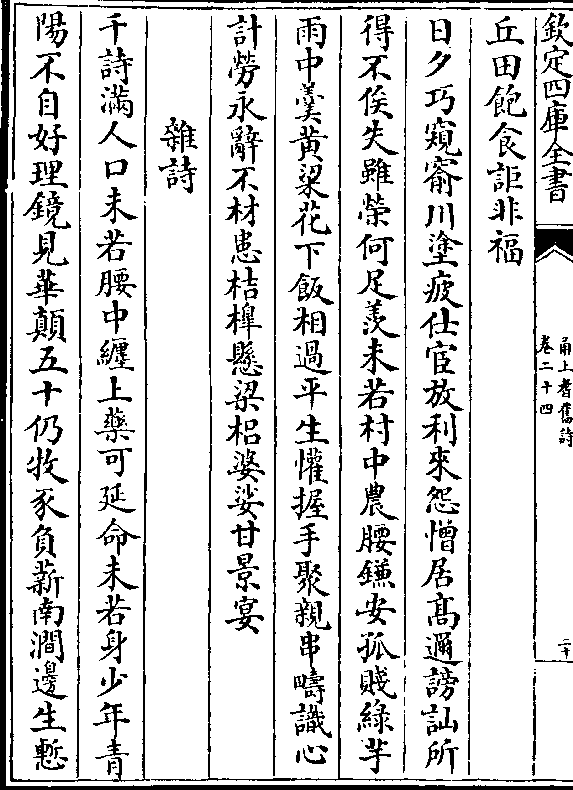 欽定四庫全書
甬上耆舊詩
卷二十四
二十
丘田飽食詎非福
日夕巧窺窬川塗疲仕宦放利來怨憎居髙邇謗訕所
得不俟失雖榮何足羨未若村中農腰鎌安孤賤綠芋
雨中羮黃粱花下飯相過平生懽握手聚親串疇識心
計勞永辭不材患桔橰懸梁梠婆娑甘景宴
雜詩
千詩滿人口未若腰中纏上藥可延命未若身少年青
陽不自好理鏡見華顛五十仍牧豕負薪南澗邊生慙